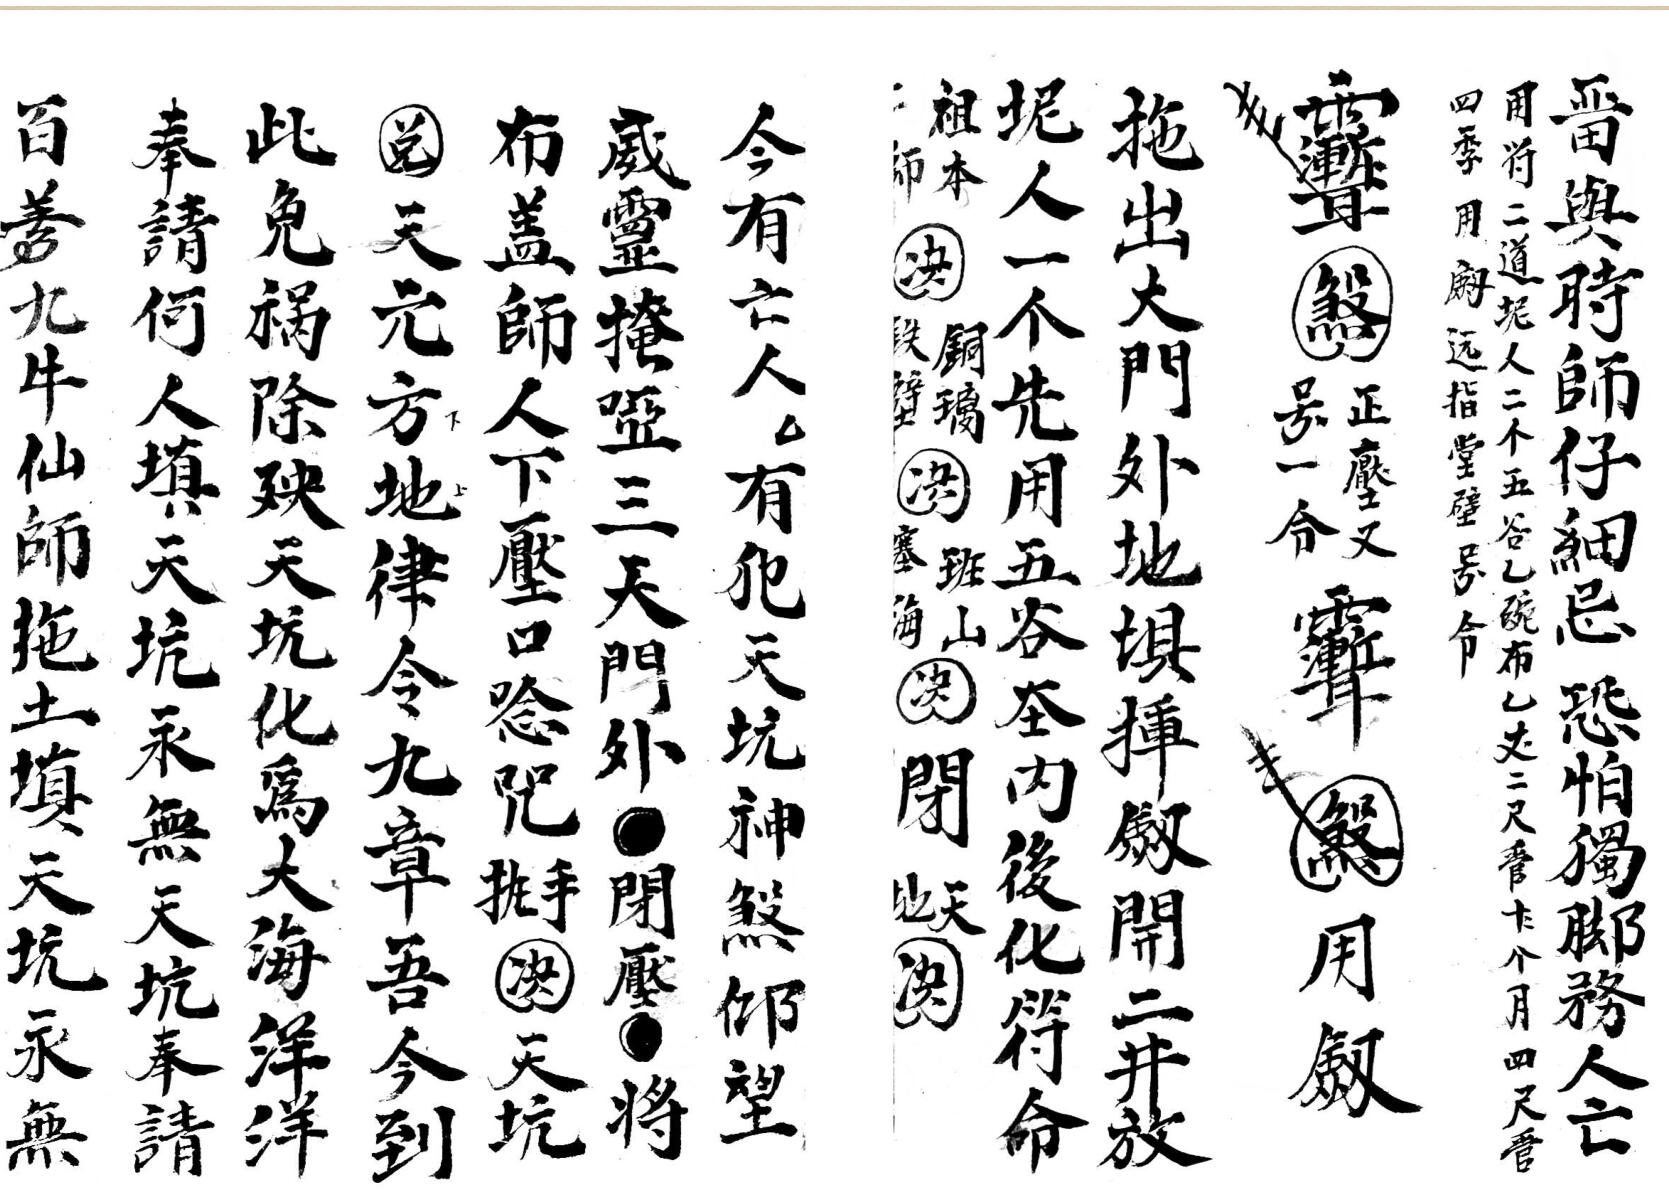 畨與時師仔細忌恐怕獨脚務人亡
用符二道坭人二个五谷乙碗布乙丈二尺管十个月四尺管
四季用劔远指堂壁号令
煞
正壓又
号一令
煞用劔
拖出大門外地埧揮劔開二井放
坭人一个先用五谷在内後化符命
祖本
師决
銅璃
鉄壁决
班山
塞海决閉
天
地决
今有亡人乙有犯天坑神煞仰望
威靈掩啞三天門外●閉壓●將
布盖師人下壓口唸咒手挋决天坑
兑天元方地律令九章吾今到
下上
此免祸除殃天坑化爲大海洋洋
奉請何人填天坑永無天坑奉請
百善九牛仙師拖土填天坑永無